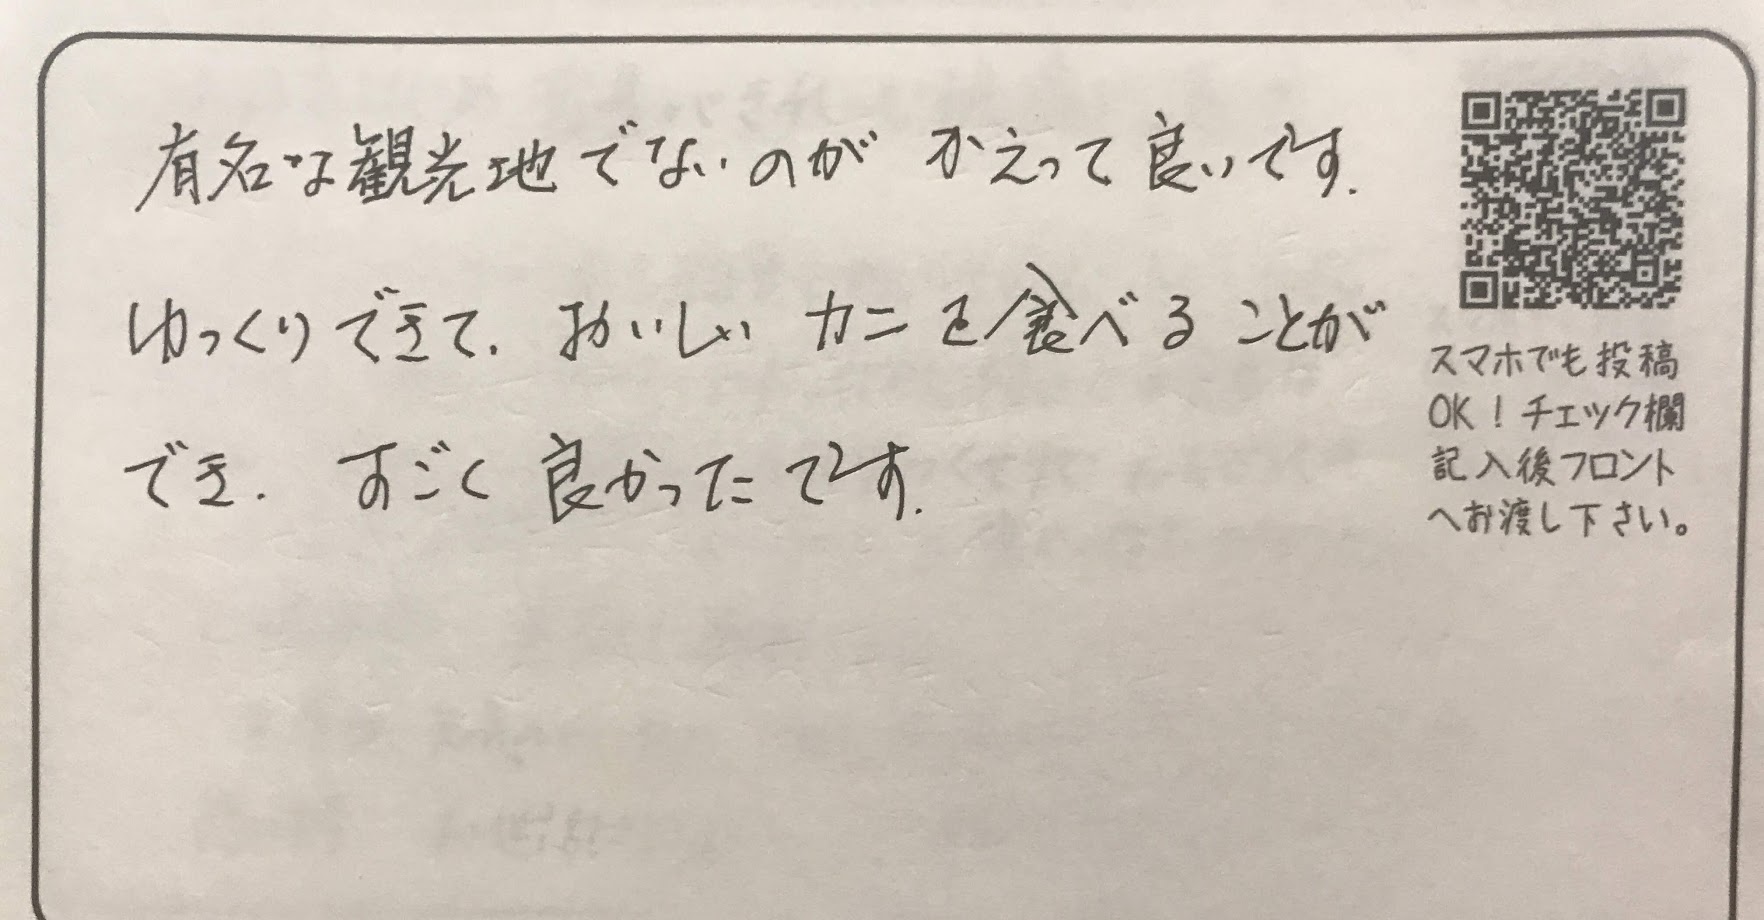 有名な観光地でないのが かえって良いです.
ゆっくりできて. おいしい カニを食べる ことが
でき. すごく 良かったです.
スマホでも投稿
OK！チェック欄
記入後フロント
へお渡し下さい。